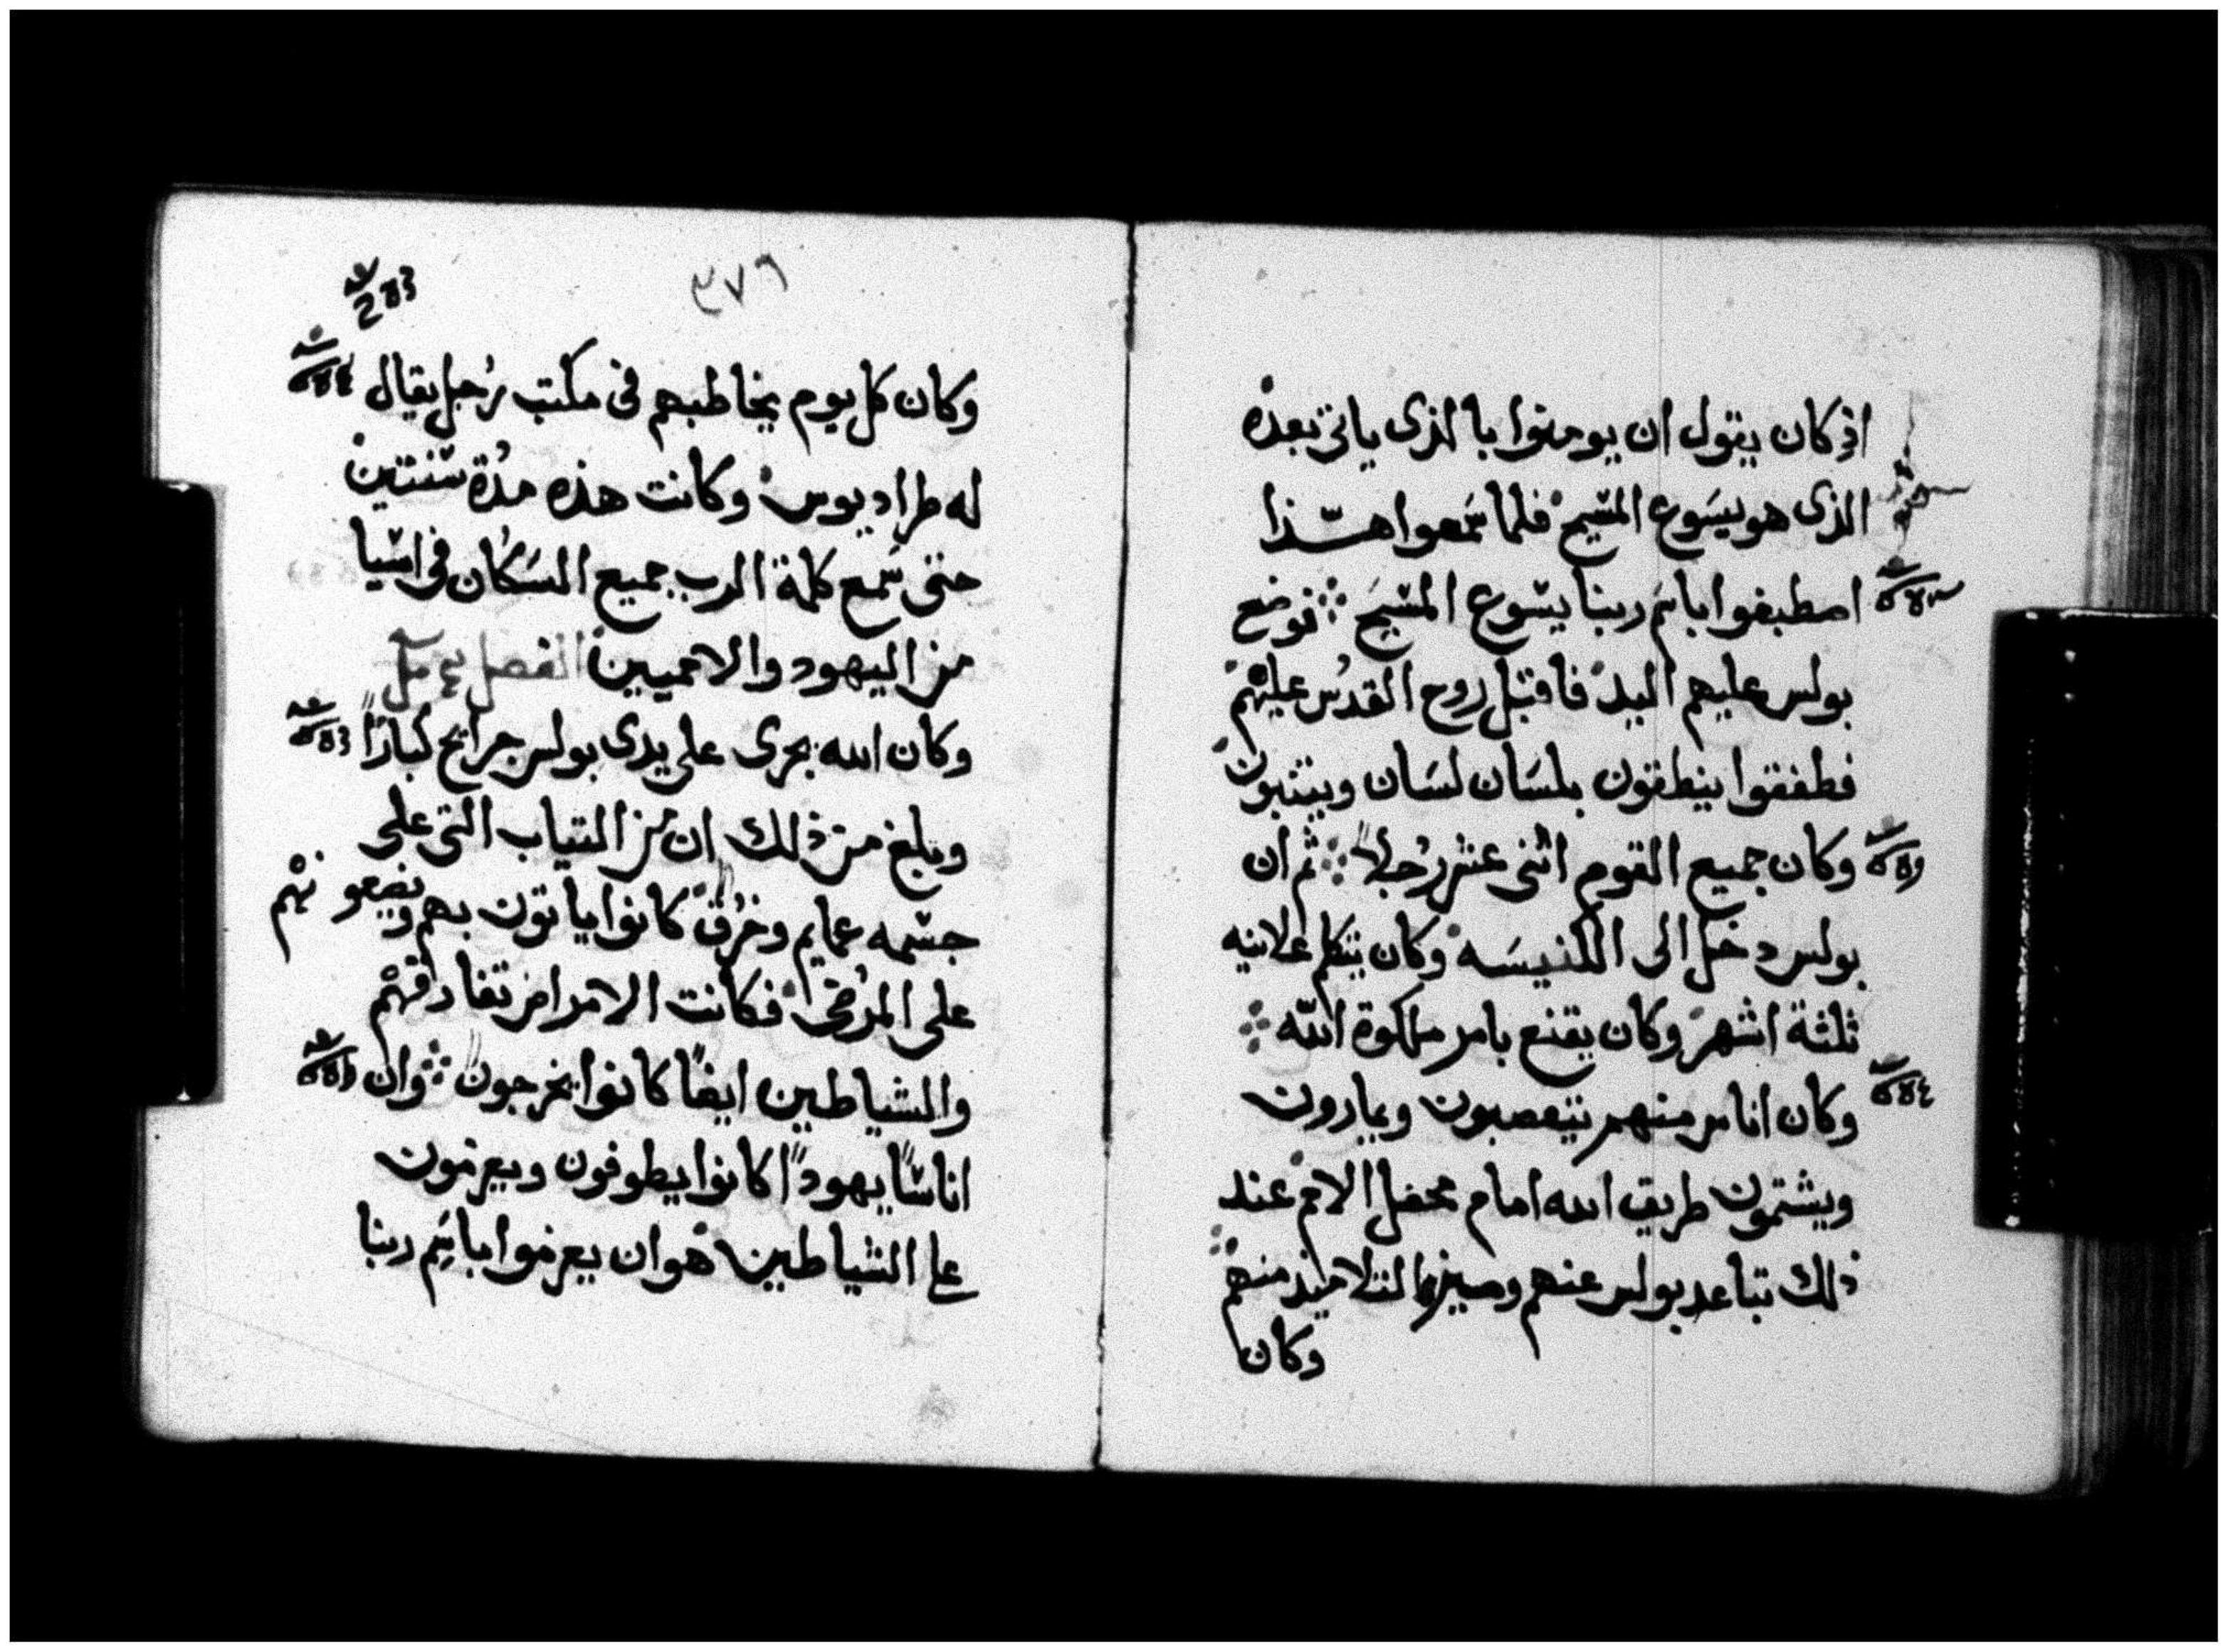 اذ كان يقول ان يومنوا بالذى ياتى بعده
الذى هو يسوع المسيح فلما سمعوا هذا
اصطبغوا باسم ربنا يسوع المسيح فوضع
بولس عليهم اليد فاقتبل روح القدس عليهم
فطفقوا ينطقون بلسان لسان ويتنبون
وكان جميع القوم اثنى عشر رجلاً ثم ان
بولس دخل الى الكنيسه وكان يتكلم علانيه
ثلثة اشهر وكان يقنع بامر ملكوة الله
وكان اناس منهم يتعصبون ويمارون
ويشتمون طريق الله امام محفل الامم عند
ذلك تباعد بولس عنهم وميز التلاميذ منهم
وكان
٣٧٦
وكان كل يوم يخاطبهم فى مكتب رجل يقال
له طراديوس وكانت هذه مدة سنتين
حتى سمع كلمة الرب جميع السكان فى اسيا
من اليهود والامميين الفصل
وكان الله يجرى على يدى بولس جرايح كباراً
وبلغ من ذلك ان من الثياب التى على
جسمه عمايم وخرق كانوا ياتون بهم ويضعونهم
على المرضى فكانت الامراض تفارقهم
والشياطين ايضاً كانوا يخرجون وان
اناساً يهوداً كانوا يطوفون ويعزمون
على الشياطين هو ان يعزموا باسم ربنا